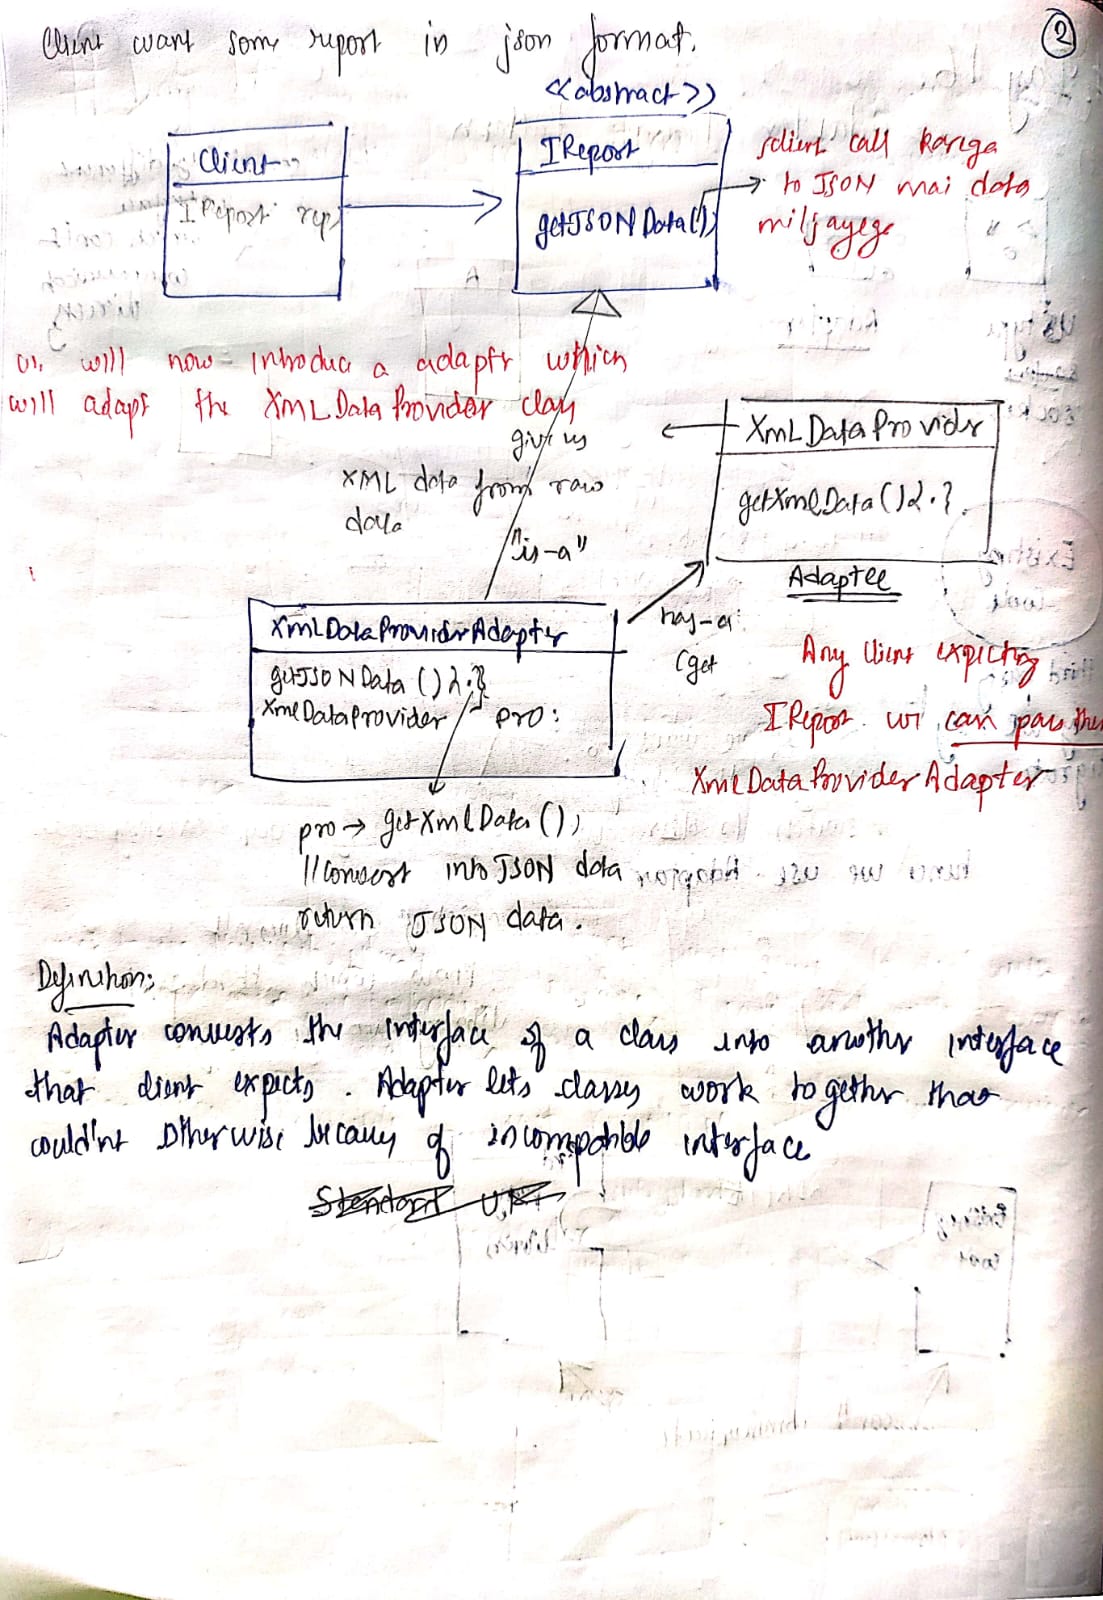 Client want some report in json format.
2
<<abstract>>
Client
IReport rep
IReport
getJSONData();
client call karega
to JSON mai data
miljayege
we will now introduce a adaptr which
will adapt the XMLDataProvider class
give us
XML data from raw
data
"is-a"
XmLDataProvidr
getXmlData(){.}.
Adaptee
has-a
(get
XmlDataProvidrAdapter
getJSONData(){.}
XmlDataProvider pro;
Any Client expecting
IReport we can pass the
XmlDataProviderAdapter
pro→getXmlData();
//Convert into JSON data
return JSON data.
Definition:
Adapter converts the interface of a class into another interface
that client expects. Adapter lets classes work together that
couldn't otherwise because of incompatible interface
Standard UML